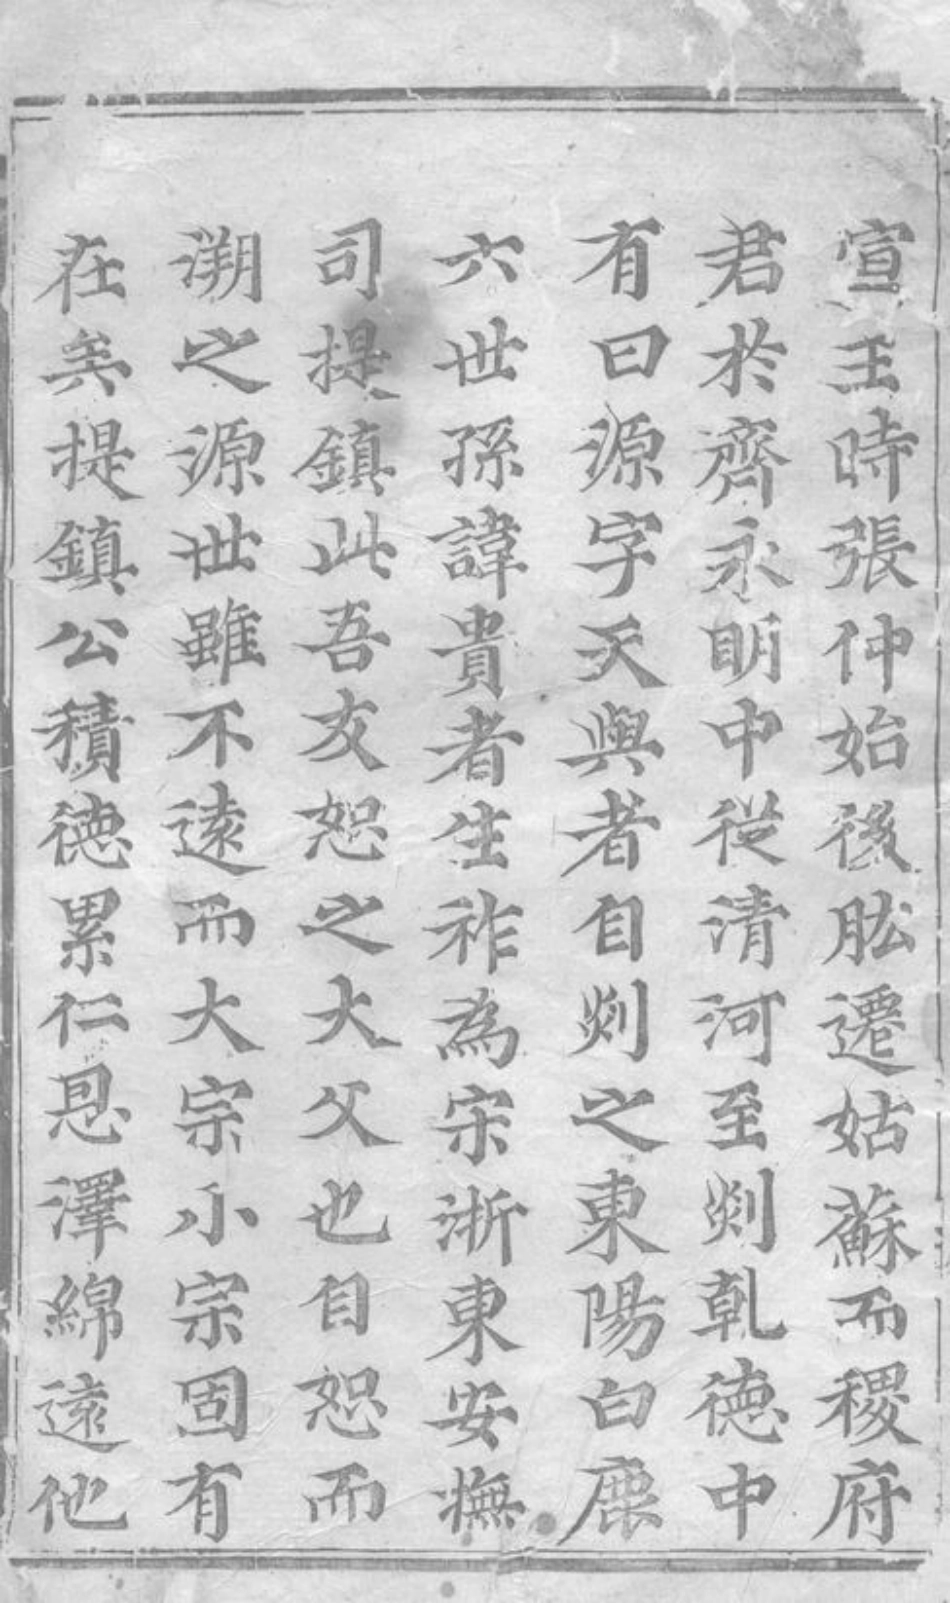 宣王時張仲始後肱遷姑蘇而稷府
君於齊永明中從清河至剡乹德中
有曰源字天與者自剡之東陽白鹿
六世孫諱貴者生祚為宋浙東安撫
司提鎮此吾友恕之大父也自恕而
溯之源世雖不逺而大宗小宗固有
在矣提鎮公積德累仁恩澤綿逺他